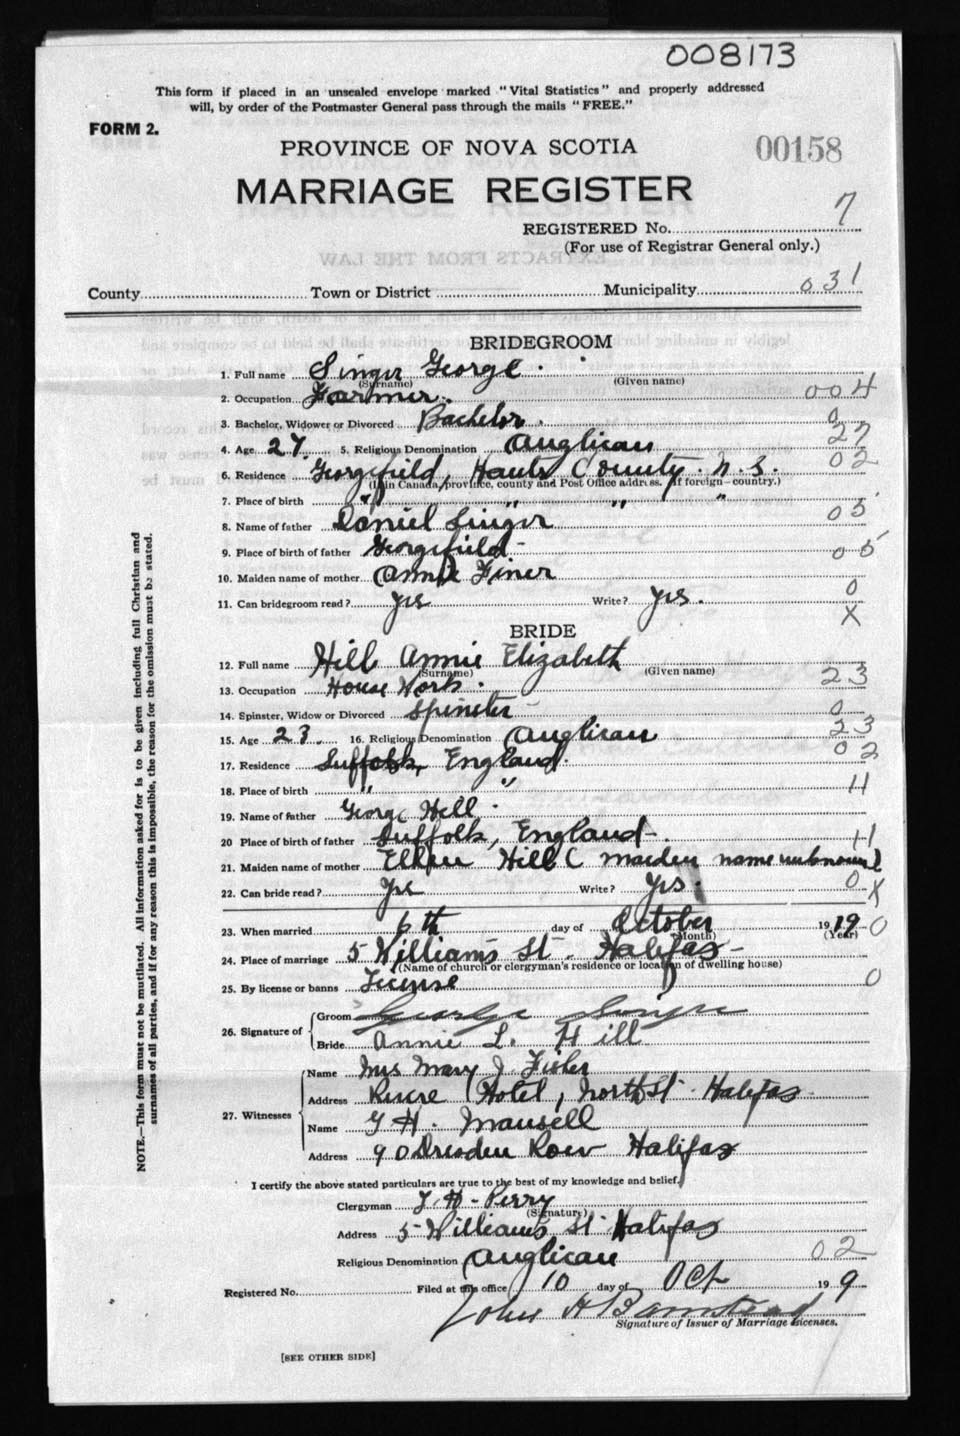 008173
This form if placed in an unsealed envelope marked "Vital Statistics" and properly addressed
will, by order of the Postmaster General pass through the mails "FREE."
FORM 2.
PROVINCE OF NOVA SCOTIA
00158
MARRIAGE REGISTER
REGISTERED No. 7
(For use of Registrar General only.)
County Town or District Municipality 031
BRIDEGROOM
1. Full name Singer George.
(Surname) (Given name)
2. Occupation Farmer. 004
3. Bachelor, Widower or Divorced Bachelor. 0
4. Age 27. 5. Religious Denomination Anglican 27
6. Residence Georgefield, Hants County. N.S. 02
(If in Canada, province, county and Post Office address. If foreign—country.)
7. Place of birth " " " "
8. Name of father Daniel Singer 05
9. Place of birth of father Georgefield 05
10. Maiden name of mother Annie Finer
11. Can bridegroom read? yes Write? yes. 0
X
BRIDE
12. Full name Hill Annie Elizabeth
(Surname) (Given name)
13. Occupation House Work. 23
14. Spinster, Widow or Divorced Spinster 0
15. Age 23. 16. Religious Denomination Anglican 23
17. Residence Suffolk, England. 02
18. Place of birth " " 11
19. Name of father George Hill
20 Place of birth of father Suffolk, England 11
21. Maiden name of mother Hill (maiden name unknown)
22. Can bride read? Yes Write? Yes. 0 X
23. When married 6th day of October 1919 0
(Month) (Year)
24. Place of marriage 5 Williams St. Halifax
(Name of church or clergyman's residence or location of dwelling house)
25. By license or banns License 0
26. Signature of Groom George Singer
Bride Annie L. Hill
27. Witnesses Name Mrs Mary J. Fisher
Address Hotel, North St Halifax
Name G H. Mansell
Address 90 Dresden Row Halifax
I certify the above stated particulars are true to the best of my knowledge and belief.
Clergyman Perry
(Signature)
Address 5 Williams St Halifax
Religious Denomination Anglican 02
Registered No. Filed at this office 10 day of Oct 19 9
John H Barnstead
Signature of Issuer of Marriage Licenses.
[SEE OTHER SIDE]
NOTE.—This form must not be mutilated. All information asked for is to be given including full Christian and
surnames of all parties, and if for any reason this is impossible, the reason for the omission must be stated.